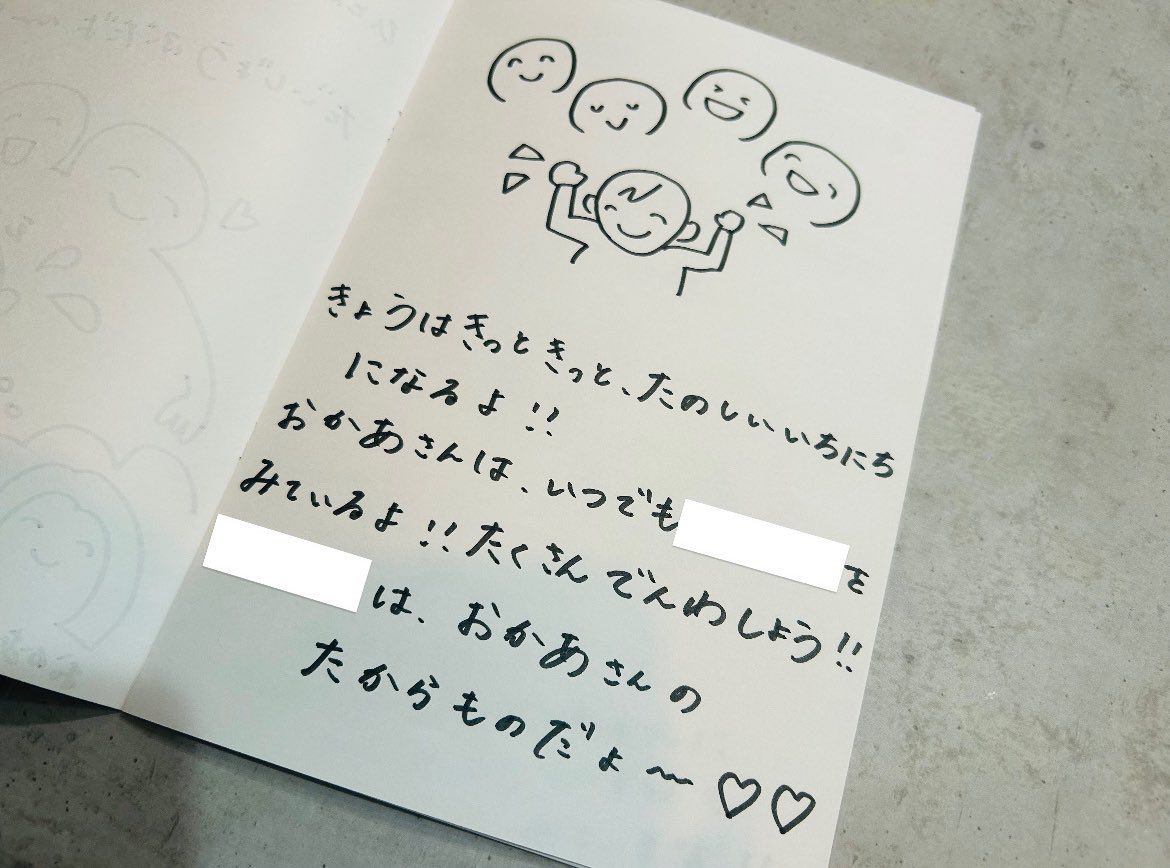 きょうはきっときっと、たのしいいちにち
になるよ!!
おかあさんは、いつでも を
みているよ!!たくさんでんわしよう!!
は、おかあさんの
たからものだよ〜♡♡